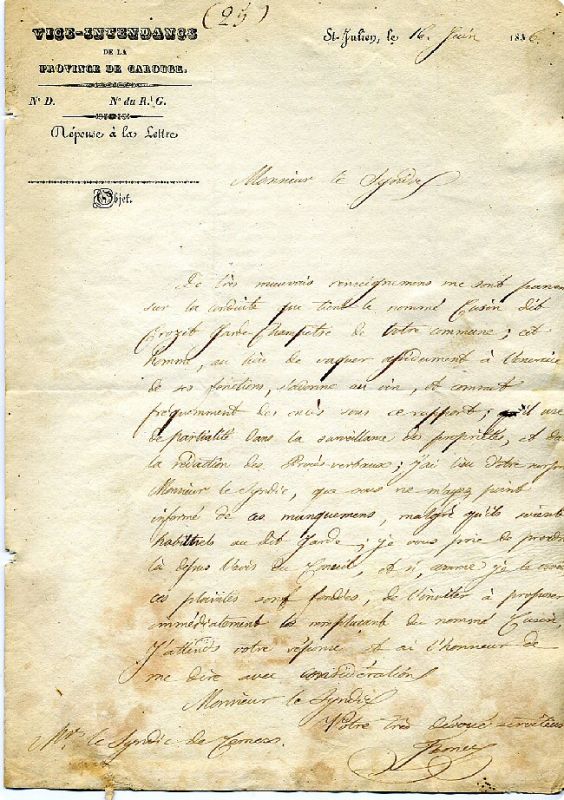 (25)
VICE-INTENDANCE
DE LA
PROVINCE DE CAROUGE.
St-Julien, le 16 Juin 1836.
N.o D. N.o du R. G.
Réponse à la Lettre
Objet.
Monsieur le Syndic
De très mauvais renseignemens me sont parven
sur la conduite que tient le nommé Cusin dit
Crozit Garde-Champetre de votre commune; cet
homme, au lieu de vaquer assidument à l'exercice
de ses fonctions, s'adonne au vin, et commet
fréquemment des excès sous ce rapport; qu'il use
de partialité dans la surveillance des propriétés, et dans
la rédaction des Procès-verbaux; j'ai lieu d'être surpris
Monsieur le Syndic, que vous ne m'ayez point
informé de ces manquemens, malgré qu'ils soient
habituels au dit Garde; je vous prie de prendre
là dessus l'avis du Conseil, et si, comme je le crois
ces plaintes sont fondées, de l'inviter à proposer
immédiatement le remplaçant du nommé Cusin,
J'attends votre réponse et ai l'honneur de
me dire avec considération
Monsieur le Syndic
Votre très dévoué serviteur
Mr. le Syndic de